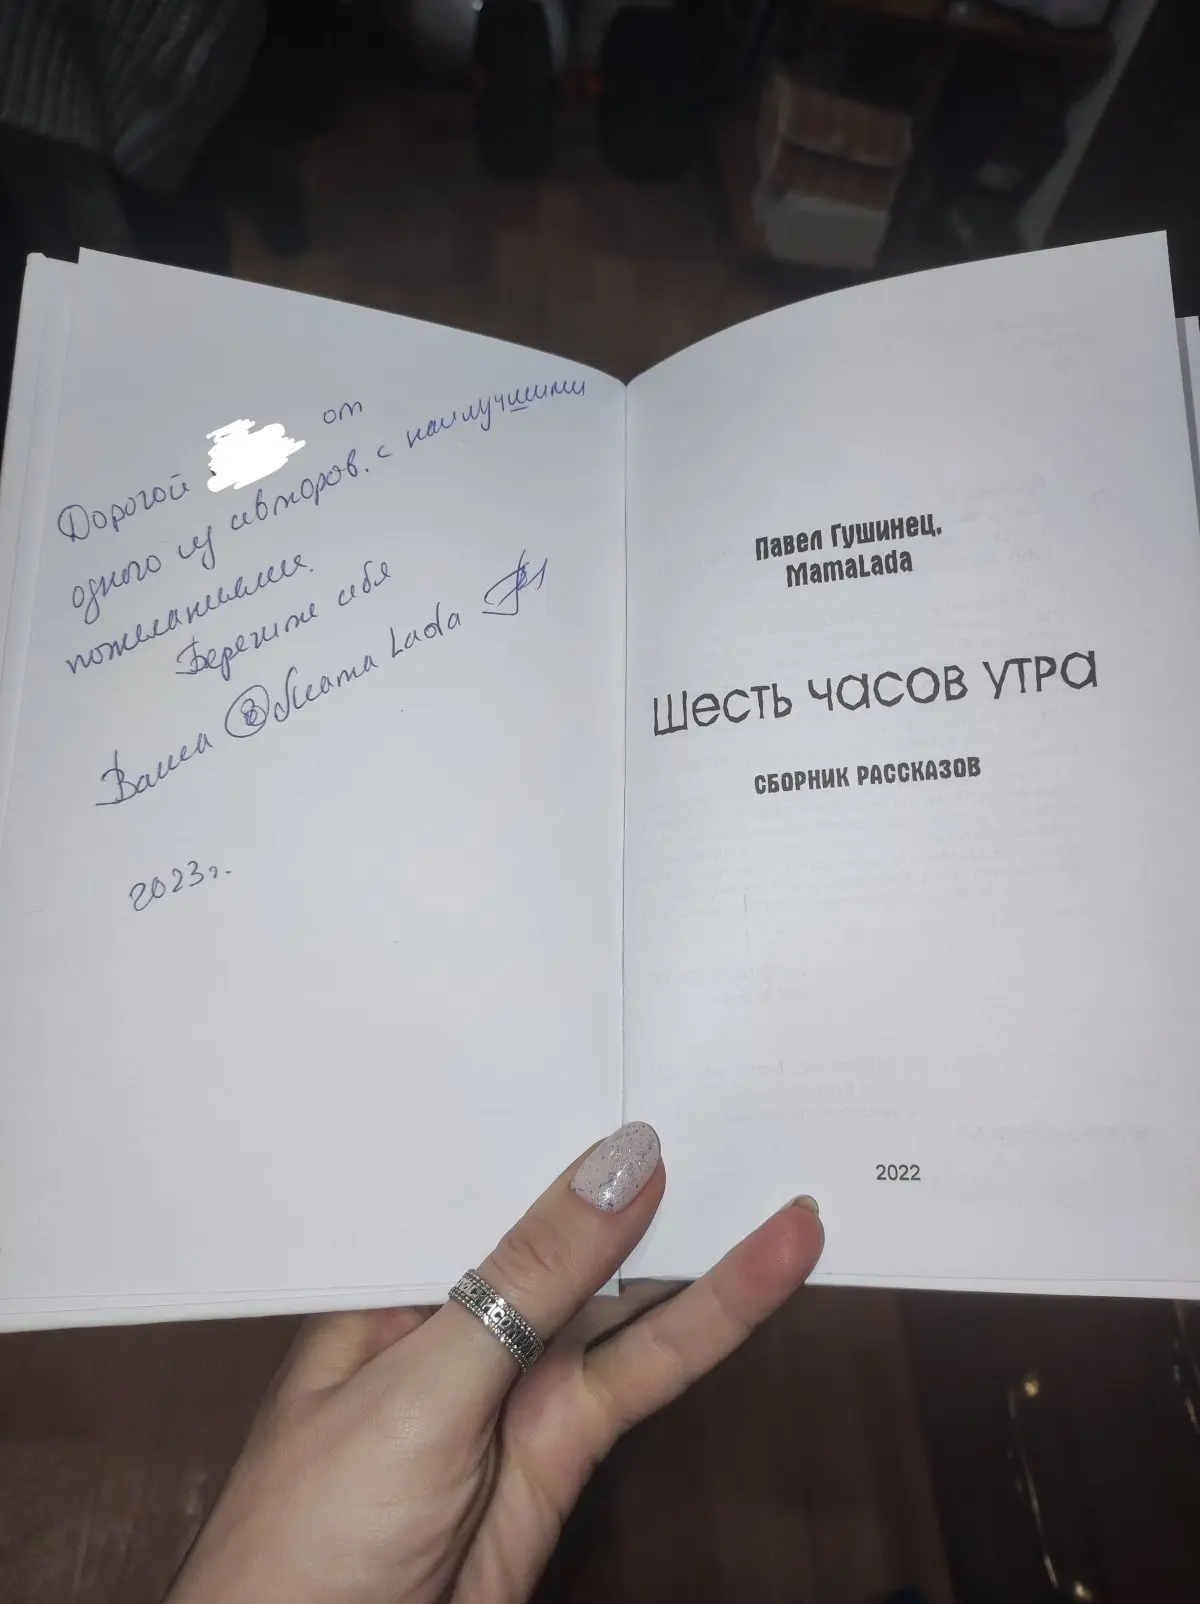 Дорогой от
одного из авторов. с наилучшими
пожеланиями.
Берегите себя
Ваша Мама Lada
2023г.
Павел Гушинец,
MamaLada
шесть часов утра
СБОРНИК РАССКАЗОВ
2022